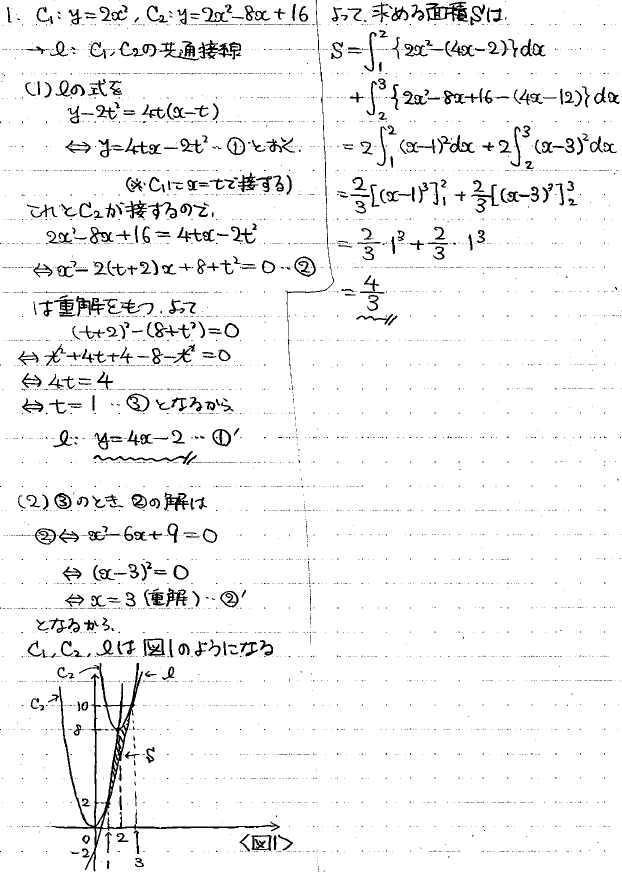 1. C₁: y=2x², C₂: y=2x²-8x+16
→ l: C₁, C₂の共通接線
(1) lの式を
y-2t²=4t(x-t)
⇔ y=4tx-2t² …① とおく.
(※ C₁にx=tで接する)
これとC₂が接するので,
2x²-8x+16=4tx-2t²
⇔ x²-2(t+2)x+8+t²=0 …②
は重解をもつ. よって
(t+2)²-(8+t²)=0
⇔ t²+4t+4-8-t²=0
⇔ 4t=4
⇔ t=1 …③ となるから
l: y=4x-2 …①'
(2) ③のとき ②の解は
② ⇔ x²-6x+9=0
⇔ (x-3)²=0
⇔ x=3 (重解) …②'
となるから,
C₁, C₂, lは図1のようになる
C₂ → ← l
C₁ → 10
8
← S
2
0
-2
1 2 3
<図1>
よって, 求める面積Sは
S=∫₁²{2x²-(4x-2)}dx
+∫₂³{2x²-8x+16-(4x-12)}dx
=2∫₁²(x-1)²dx+2∫₂³(x-3)²dx
=2/3[(x-1)³]₁²+2/3[(x-3)³]₂³
=2/3・1³+2/3・1³
=4/3